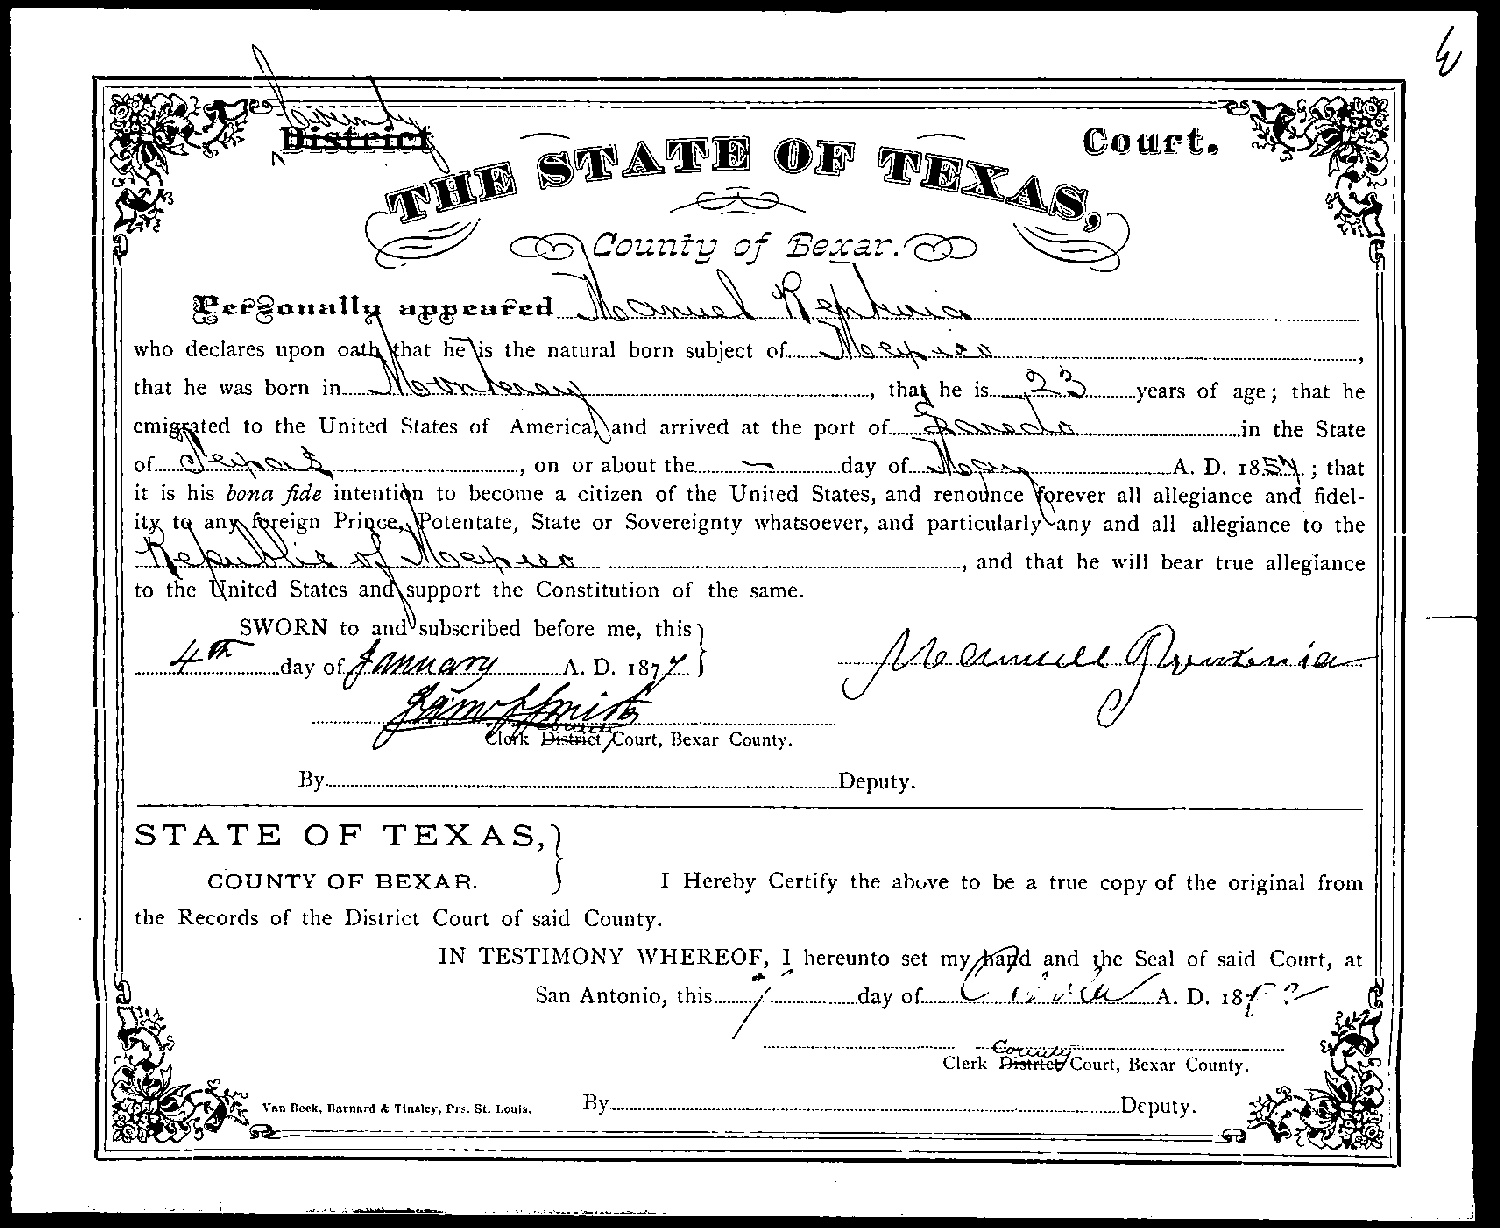 County
District Court.
THE STATE OF TEXAS,
County of Bexar.
Personally appeared Manuel
who declares upon oath that he is the natural born subject of Mexico,
that he was born in Monterey, that he is 23 years of age; that he
emigrated to the United States of America, and arrived at the port of Laredo in the State
of Texas, on or about the — day of May A. D. 1857; that
it is his bona fide intention to become a citizen of the United States, and renounce forever all allegiance and fidel-
ity to any foreign Prince, Potentate, State or Sovereignty whatsoever, and particularly any and all allegiance to the
Republic of Mexico, and that he will bear true allegiance
to the United States and support the Constitution of the same.
SWORN to and subscribed before me, this
4th day of January A. D. 1877
Manuell
Smith
County
Clerk District Court, Bexar County.
By Deputy.
STATE OF TEXAS,
COUNTY OF BEXAR.
I Hereby Certify the above to be a true copy of the original from
the Records of the District Court of said County.
IN TESTIMONY WHEREOF, I hereunto set my hand and the Seal of said Court, at
San Antonio, this day of A. D. 18
County
Clerk District Court, Bexar County.
Van Beek, Barnard & Tinsley, Prs. St. Louis.
By Deputy.